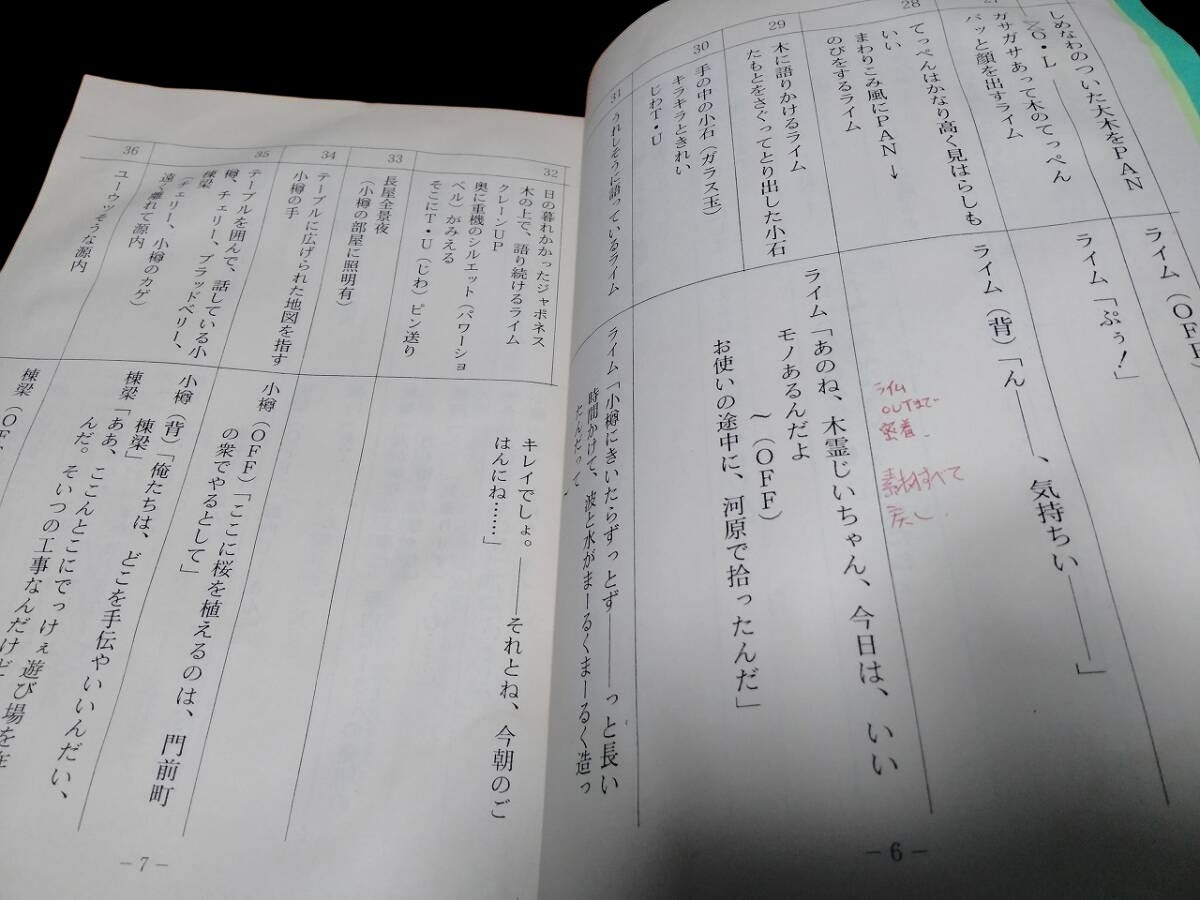 しめなわのついた大木をPAN
ガサガサあって木のてっぺん
バッと顔を出すライム
ライム「ぷぅ！」
28
てっぺんはかなり高く見はらしも
いい
まわりこみ風にPAN→
のびをするライム
ライム（背）「ん――、気持ちい――」
29
木に語りかけるライム
たもとをさぐってとり出した小石
ライム「あのね、木霊じいちゃん、今日は、いい
モノあるんだよ
～（OFF）
お使いの途中に、河原で拾ったんだ」
ライム
OUTまで
密着.
素材すべて
戻し.
30
手の中の小石（ガラス玉）
キラキラときれい
じわT・U
31
うれしそうに語っているライム
ライム「小樽にきいたらずっとず――っと長い
時間かけて、波と水がまーるくまーるく造っ
たんだって、
－6－
32
日の暮れかかったジャポネス
木の上で、語り続けるライム
クレーンUP
奥に重機のシルエット（パワーショ
ベル）がみえる
そこにT・U（じわ）ピン送り
キレイでしょ。――それとね、今朝のご
はんにね……」
33
長屋全景夜
（小樽の部屋に照明有）
34
テーブルに広げられた地図を指す
小樽の手
小樽（OFF）「ここに桜を植えるのは、門前町
の衆でやるとして」
35
テーブルを囲んで、話している小
樽、チェリー、ブラッドベリー、
棟梁
（チェリー、小樽のカゲ）
遠く離れて源内
小樽（背）「俺たちは、どこを手伝やいいんだい、
棟梁」
棟梁「ああ、ここんとこにでっけぇ遊び場を
んだ。そいつの工事なんだけど
36
ユーウツそうな源内
棟梁（OFF
－7－